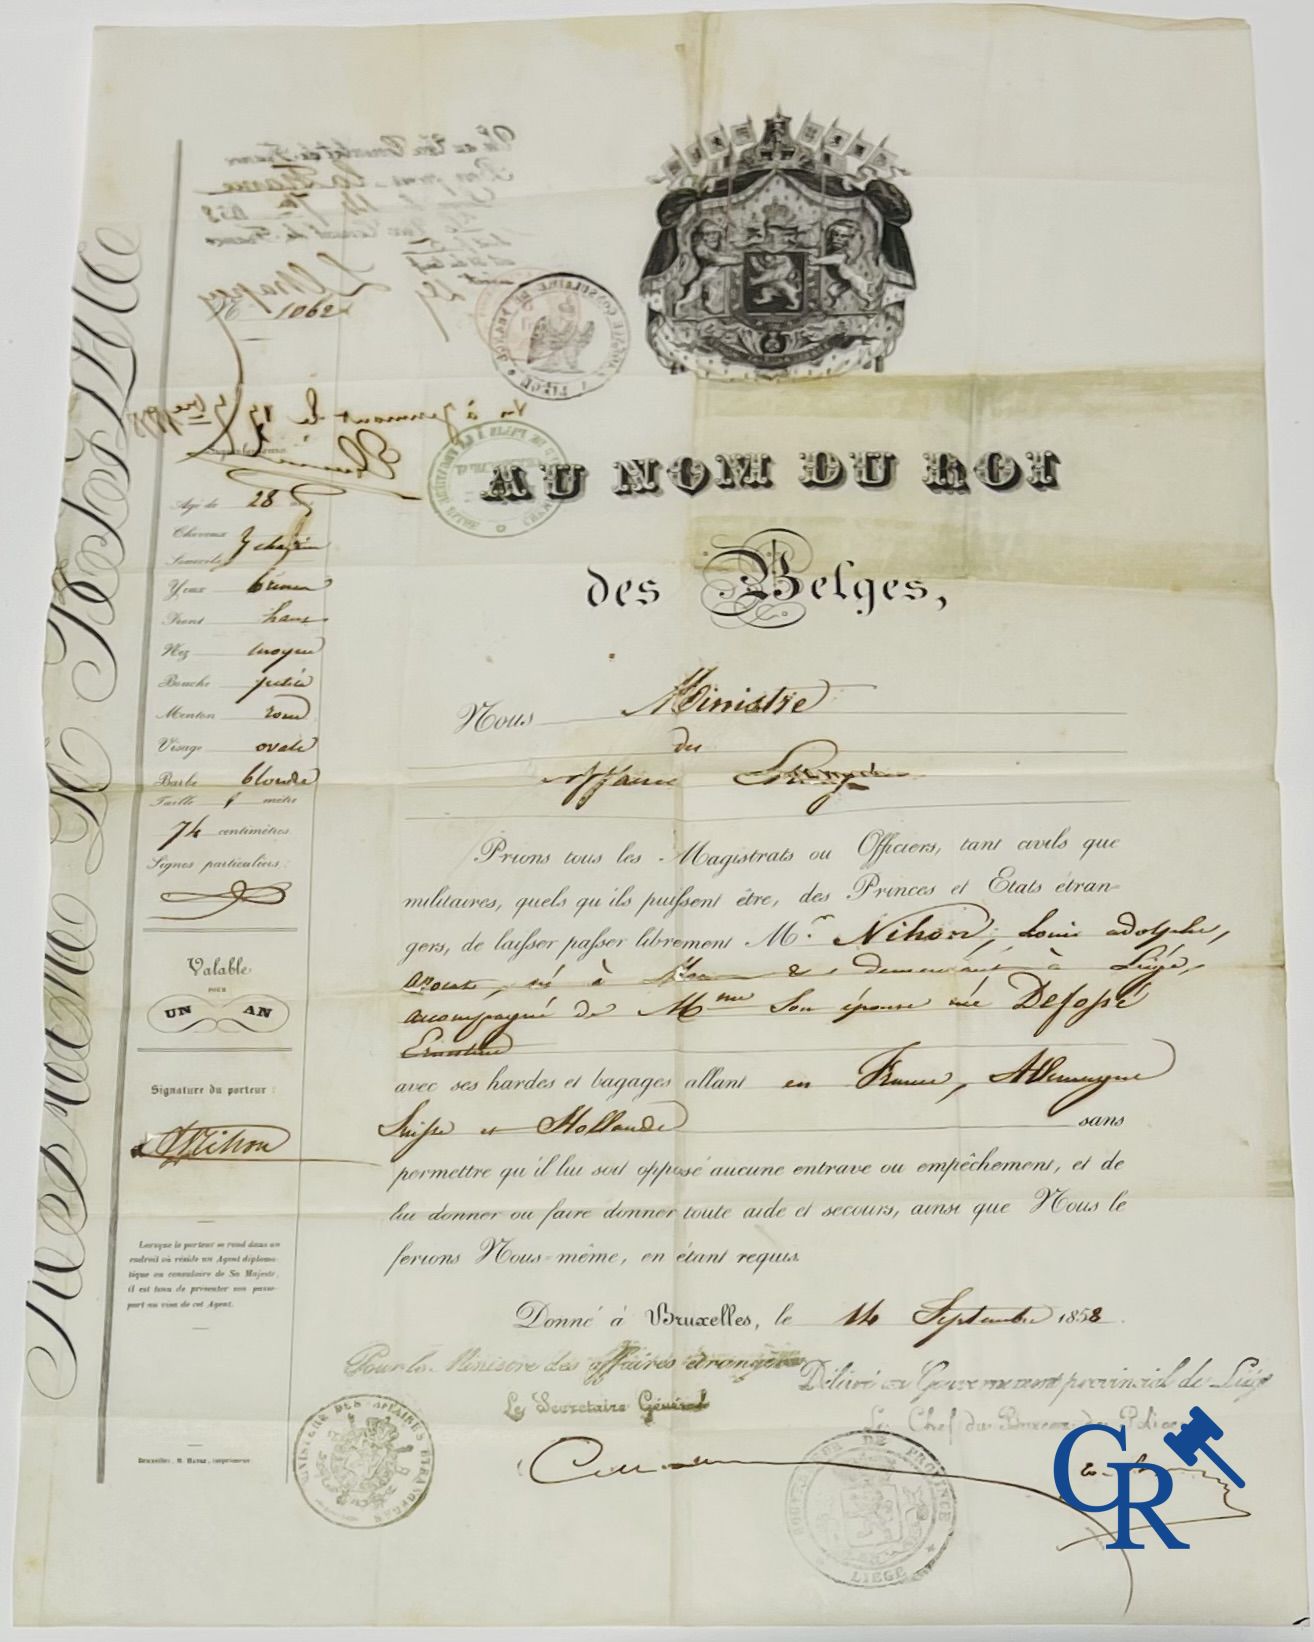 ROYAUME DE BELGIQUE
N° 1062
Agé de 28 ans
Cheveux
Sourcils } chatain
Yeux bruns
Front haut
Nez moyen
Bouche petite
Menton rond
Visage ovale
Barbe blonde
Taille 1 mètre
74 centimètres.
Signes particuliers:
Valable
POUR
UN AN
Signature du porteur:
Nihon
Lorsque le porteur se rend dans un
endroit où réside un Agent diploma-
tique ou consulaire de Sa Majesté,
il est tenu de présenter son passe-
port au visa de cet Agent.
AU NOM DU ROI
des Belges,
Nous Ministre
des
Affaires Etrangères
Prions tous les Magistrats ou Officiers, tant civils que
militaires, quels qu'ils puissent être, des Princes et Etats étran-
gers, de laisser passer librement Mr. Nihon, Louis adolphe,
avocat, né à & demeurant à Liége,
accompagné de Mme son épouse née Defossé
Ernestine
avec ses hardes et bagages allant en France, Allemagne
Suisse et Hollande sans
permettre qu'il lui soit opposé aucune entrave ou empêchement, et de
lui donner ou faire donner toute aide et secours, ainsi que Nous le
ferions Nous-même, en étant requis.
Donné à Bruxelles, le 14 Septembre 1858.
Pour le Ministre des affaires étrangères
Le Secrétaire Général
Délivré au Gouvernement provincial de Liége
Le Chef du Bureau de Police
MINISTRE DES AFFAIRES ETRANGERES
GOUVERNEMENT DE PROVINCE
LIEGE
CR